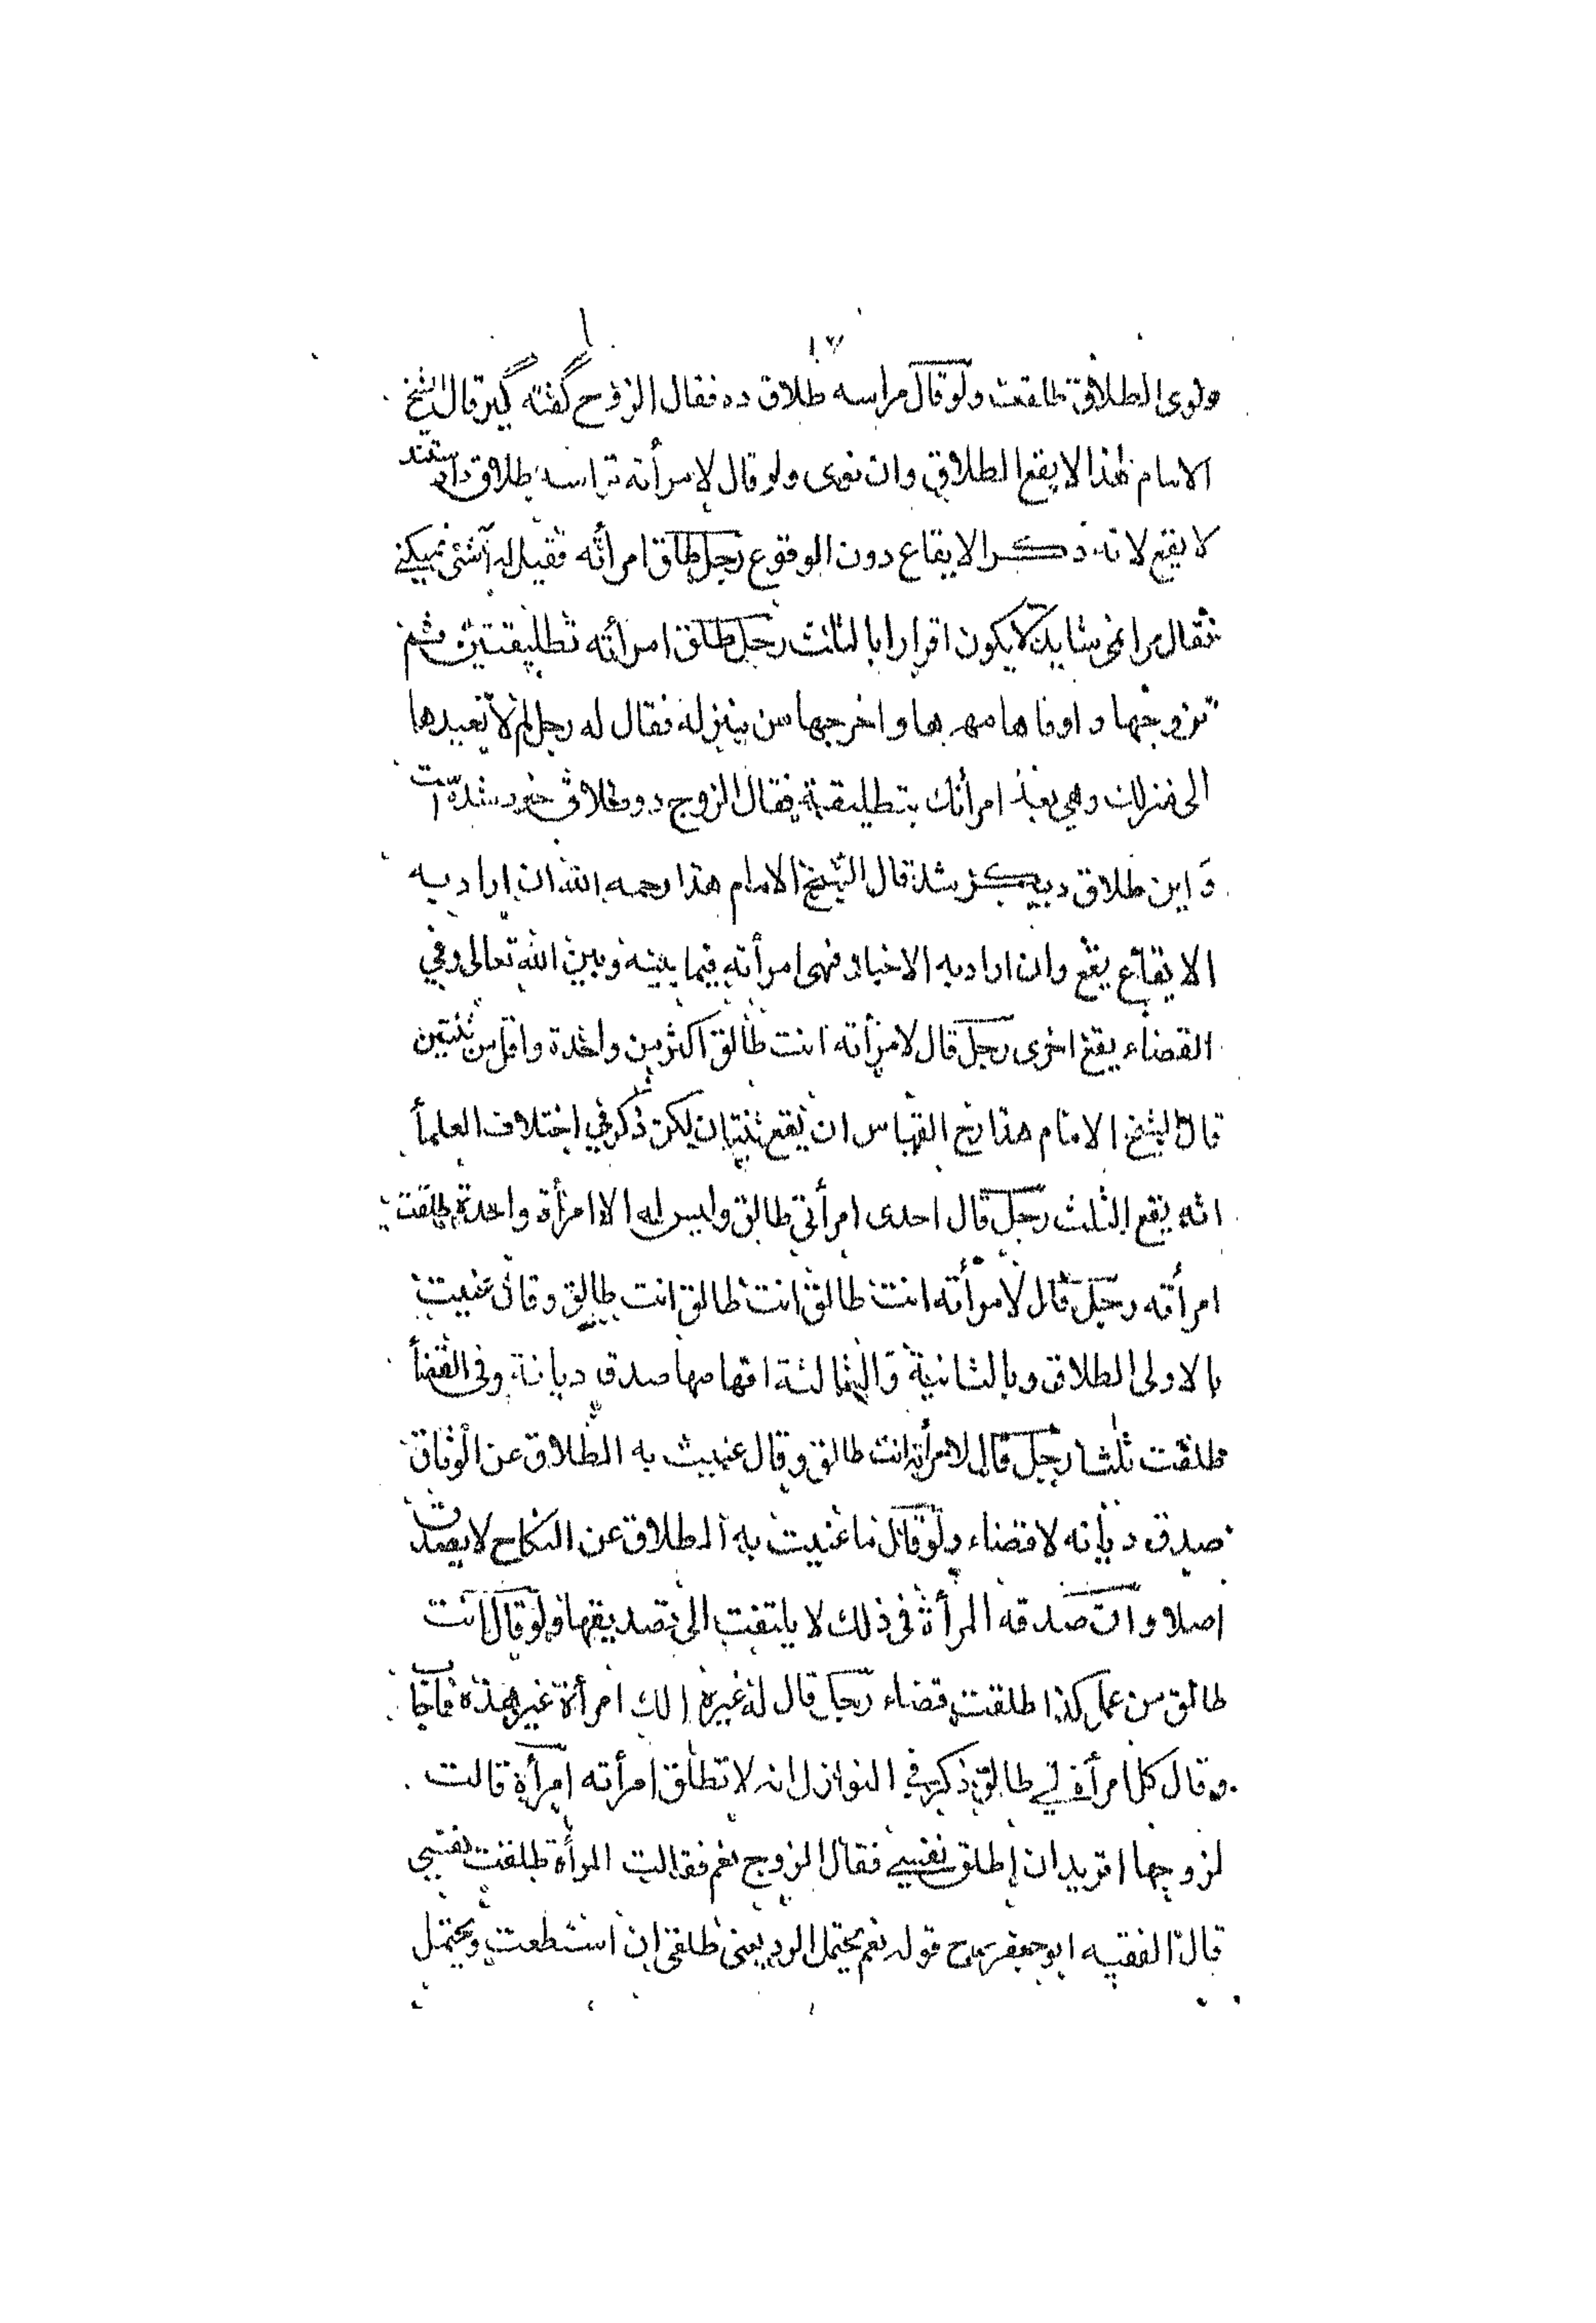 ١٧
ونوى الطلاق طلقت ولو قال مراسه طلاق ده فقال الزوج گفته گير قال الشيخ
الامام هذا لا يقع الطلاق وان نوى ولو قال لامرأته تراسه طلاق دادستند
لا يقع لانه ذكر الايقاع دون الوقوع رجل طلق امرأته فقيل له آشتى نميكنى
فقال مرا نمى شايد لا يكون اقرارا بالثلث رجل طلق امرأته تطليقتين ثم
تزوجها واوفاها مهرها واخرجها من منزله فقال له رجل لم لا تعيدها
الى منزلك وهي بعد امرأتك بتطليقة فقال الزوج دو طلاق خود شده است
و اين طلاق ديگر شد قال الشيخ الامام هذا رحمه الله ان اراد به
الايقاع يقع وان اراد به الاخبار فهى امرأته فيما بينه وبين الله تعالى وفي
القضاء يقع اخرى رجل قال لامرأته انت طالق اكثر من واحدة واقل من ثنتين
قال الشيخ الامام هذا رح القياس ان يقع ثنتان لكن ذكر في اختلاف العلمأ
انه يقع الثلث رجل قال احدى امرأتي طالق وليس له الا امرأة واحدة طلقت
امرأته رجل قال لامرأته انت طالق انت طالق انت طالق وقال عنيت
بالاولى الطلاق وبالثانية والثالثة افهامها صدق ديانة وفى القضأ
طلقت ثلثا رجل قال لامرأته انت طالق وقال عنيت به الطلاق عن الوثاق
صدق ديانه لا قضاء ولو قال ما عنيت به الطلاق عن النكاح لا يصدق
اصلا وان صدقه المرأة فى ذلك لا يلتفت الى تصديقها ولو قال انت
طالق من عمل كذا طلقت قضاء رجل قال له غيره الك امرأة غير هذه فاجاب
وقال كل امرأة لي طالق ذكر في النوازل انه لا تطلق امرأته امرأة قالت
لزوجها اتريد ان اطلق نفسي فقال الزوج نعم فقالت المرأة طلقت نفسي
قال الفقيه ابو جعفر رح قوله نعم يحتمل الرد يعنى طلقى ان استطعت ويحتمل